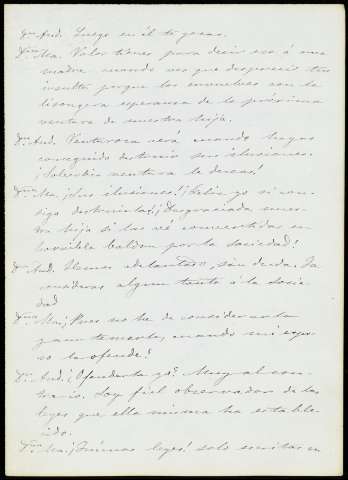 Dn And. Luego en él te gozas.
Dña Ma. Valor tienes para decir eso á una
madre cuando ves que desprecio tus
insultos porque los envuelves con la
lisongera esperanza de la próxima
ventura de nuestra hija.
Dn And. Venturosa será cuando hayas
conseguido destruir sus ilusiones.
¡Soberbia ventura la deseas!
Dña Ma. ¡Sus ilusiones! ¡Feliz yo si con-
sigo destruirlas! ¡Desgraciada nues-
tra hija si las vé convertidas en
horrible baldon por la sociedad!
Dn And. Hemos adelantado, sin duda. Ya
consideras algun tanto á la socie-
dad
Dña Ma. ¡Pues no he de considerarla
cuando mi espo-
so la ofende!
Dn And. ¡Ofenderla yo? Muy al con-
trario. Soy fiel observador de las
leyes que ella misma ha estable-
cido.
Dña Ma. ¡Buenas leyes! solo escritas en